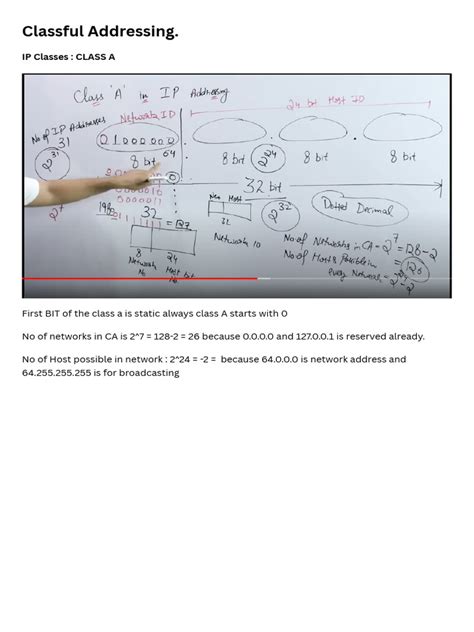 Classful Addressing.
IP Classes : CLASS A
Class 'A' in IP Addressing
No of IP Addresses
31
2^31
Network ID
01000000
64
8 bit
24 bit Host ID
8 bit
2^24
8 bit
8 bit
0
32 bit
2^7
32
= 127
8
24
Network
Host bit
Host
32
2^32
Network ID
Dotted Decimal
No of Networks in CA = 2^7 = 128-2
= 126
No of Hosts Possible in
every Network = 2^24-2
First BIT of the class a is static always class A starts with 0
No of networks in CA is 2^7 = 128-2 = 26 because 0.0.0.0 and 127.0.0.1 is reserved already.
No of Host possible in network : 2^24 = -2 = because 64.0.0.0 is network address and
64.255.255.255 is for broadcasting